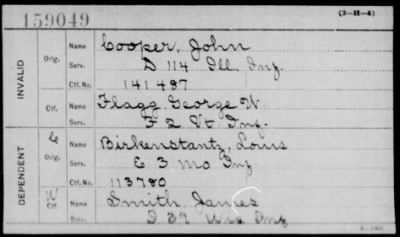 159049
(3-H-4)
INVALID
Orig.
Name Cooper, John
Serv. D 114 Ill Inf.
Ctf. No. 141487
Ctf.
Name Flagg George W.
Serv. F 2 Vt Inf.
DEPENDENT
Orig.
Name Birkenstantz, Louis
Serv. E 3 Mo Inf
Ctf. No. 113780
W
Ctf.
Name Smith James
Serv. D 37 Wis Inf